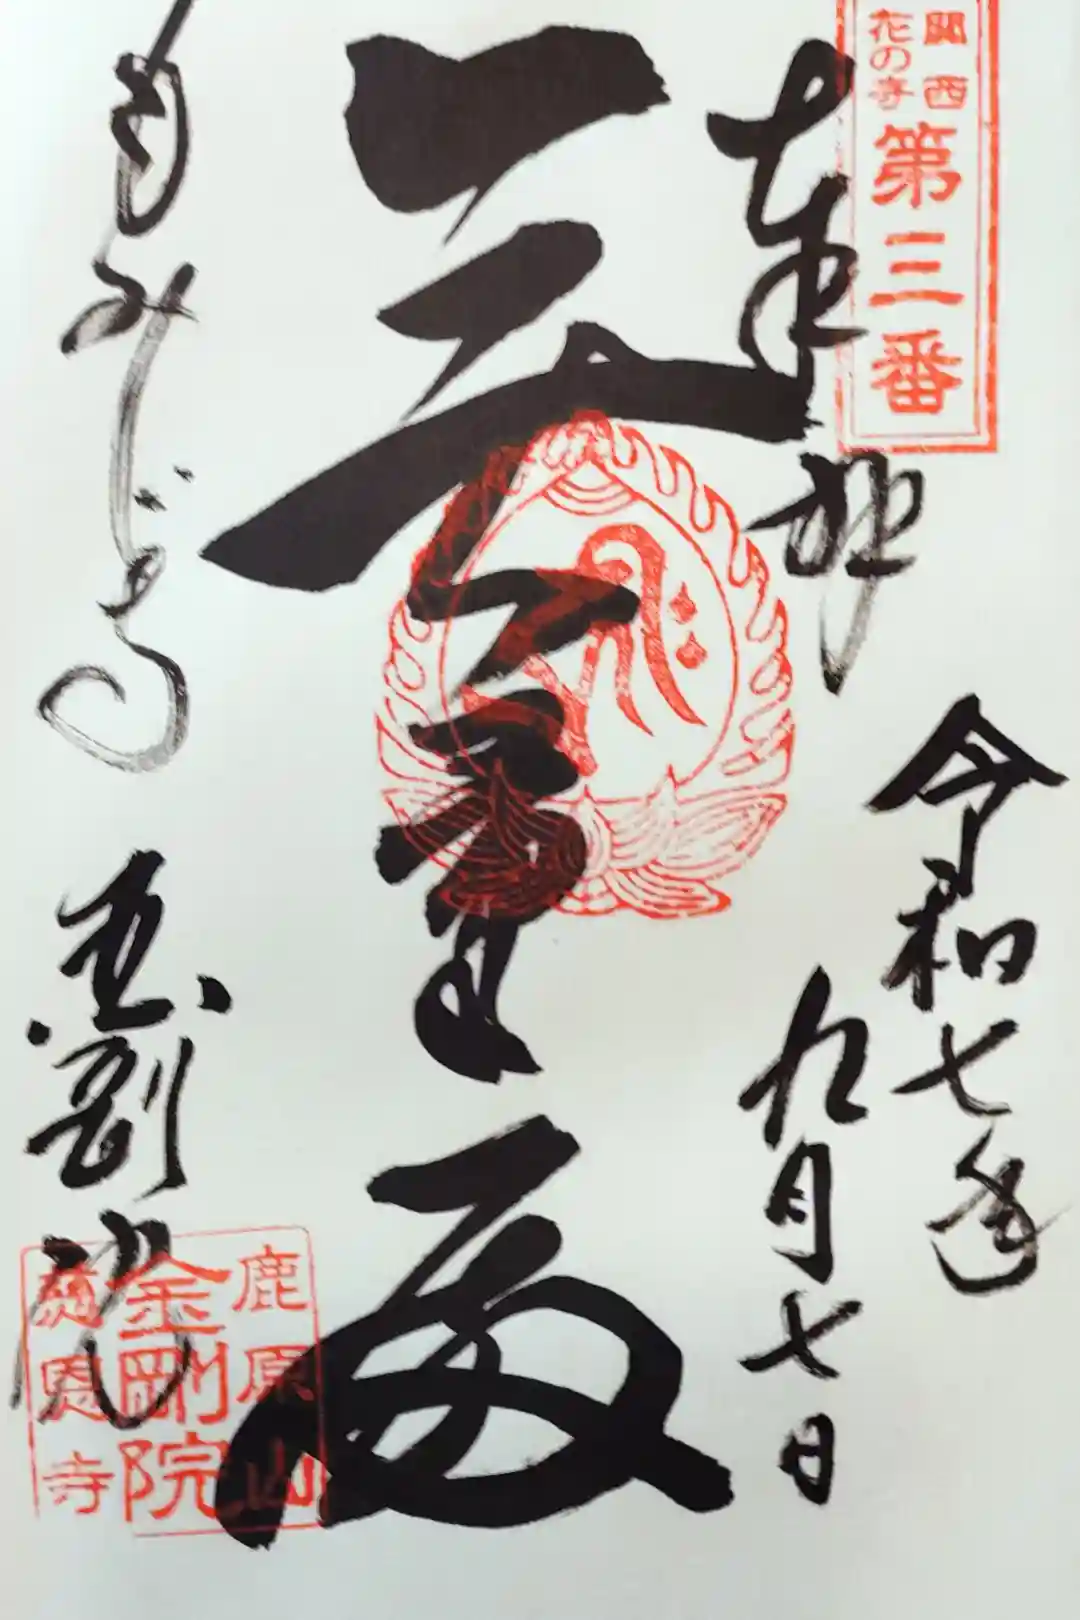 関西
花の寺
第三番
奉拝
令和七年
九月七日
もみじ寺
金剛院
鹿原山
金剛院
慈恩寺